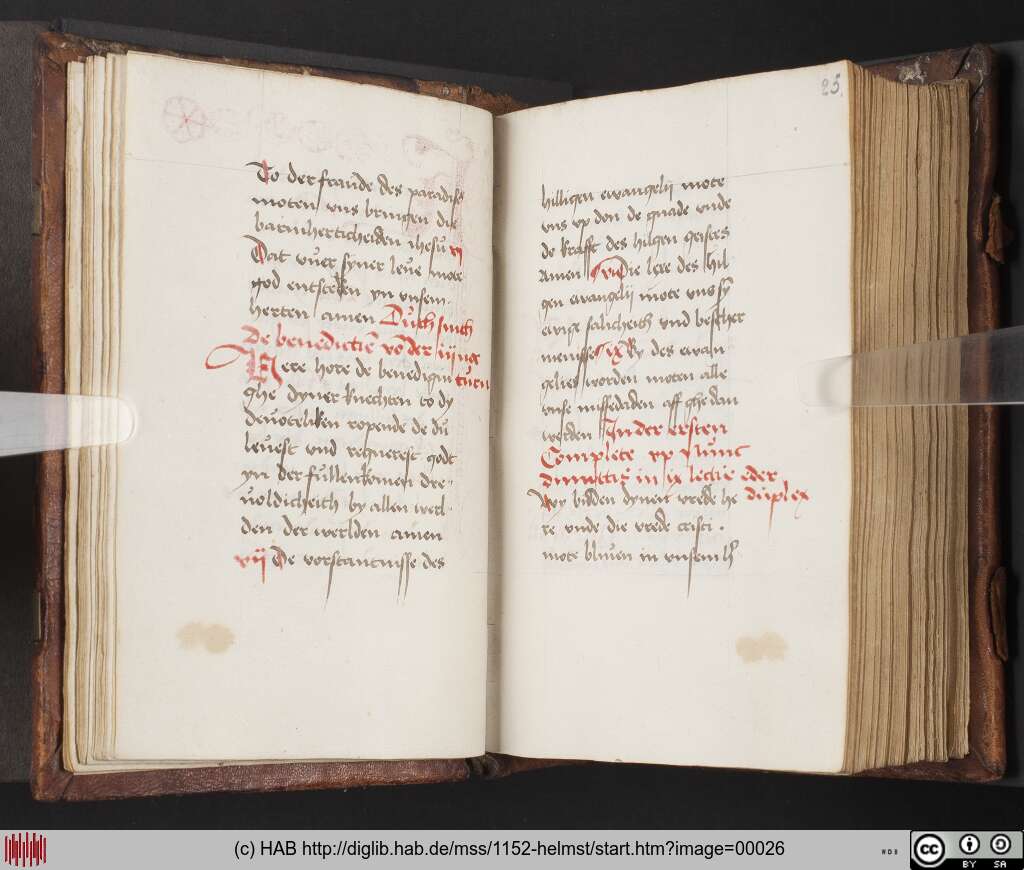 To der fraude des paradise
moten vns bringen die
barmherticheiden ihesu vj
Dat vuer syner leue mote
god entsteken yn vnsem
herten amen Duth sinth
De benedictie vo der iij nac
turn
Here hore de benedigin
ghe dyner knechten to dy
deuoteliken ropende de du
leuest vnd regnerest godt
yn der fullenkomen dre-
uoldicheith by allen werl-
den der werlden amen
vij De vorstantnisse des
25
hilligen ewangelij mote
vns vp don de gnade vnde
de krafft des hilgen geistes
Amen viij Die lere des hil
gen ewangelij mote vns sy
ewige salicheith vnd bescher
menisse ix By des ewan
gelies worden moten alle
vnse missedaden aff ghedan
werden In der ersten
Complete vp Nunc
dimittis in ix lectie eder
duplex
Wy bidden dynen vrede he
re vnde die vrede cristi .
mote bliuen in vnsem h
(c) HAB http://diglib.hab.de/mss/1152-helmst/start.htm?image=00026
WDB
cc BY SA